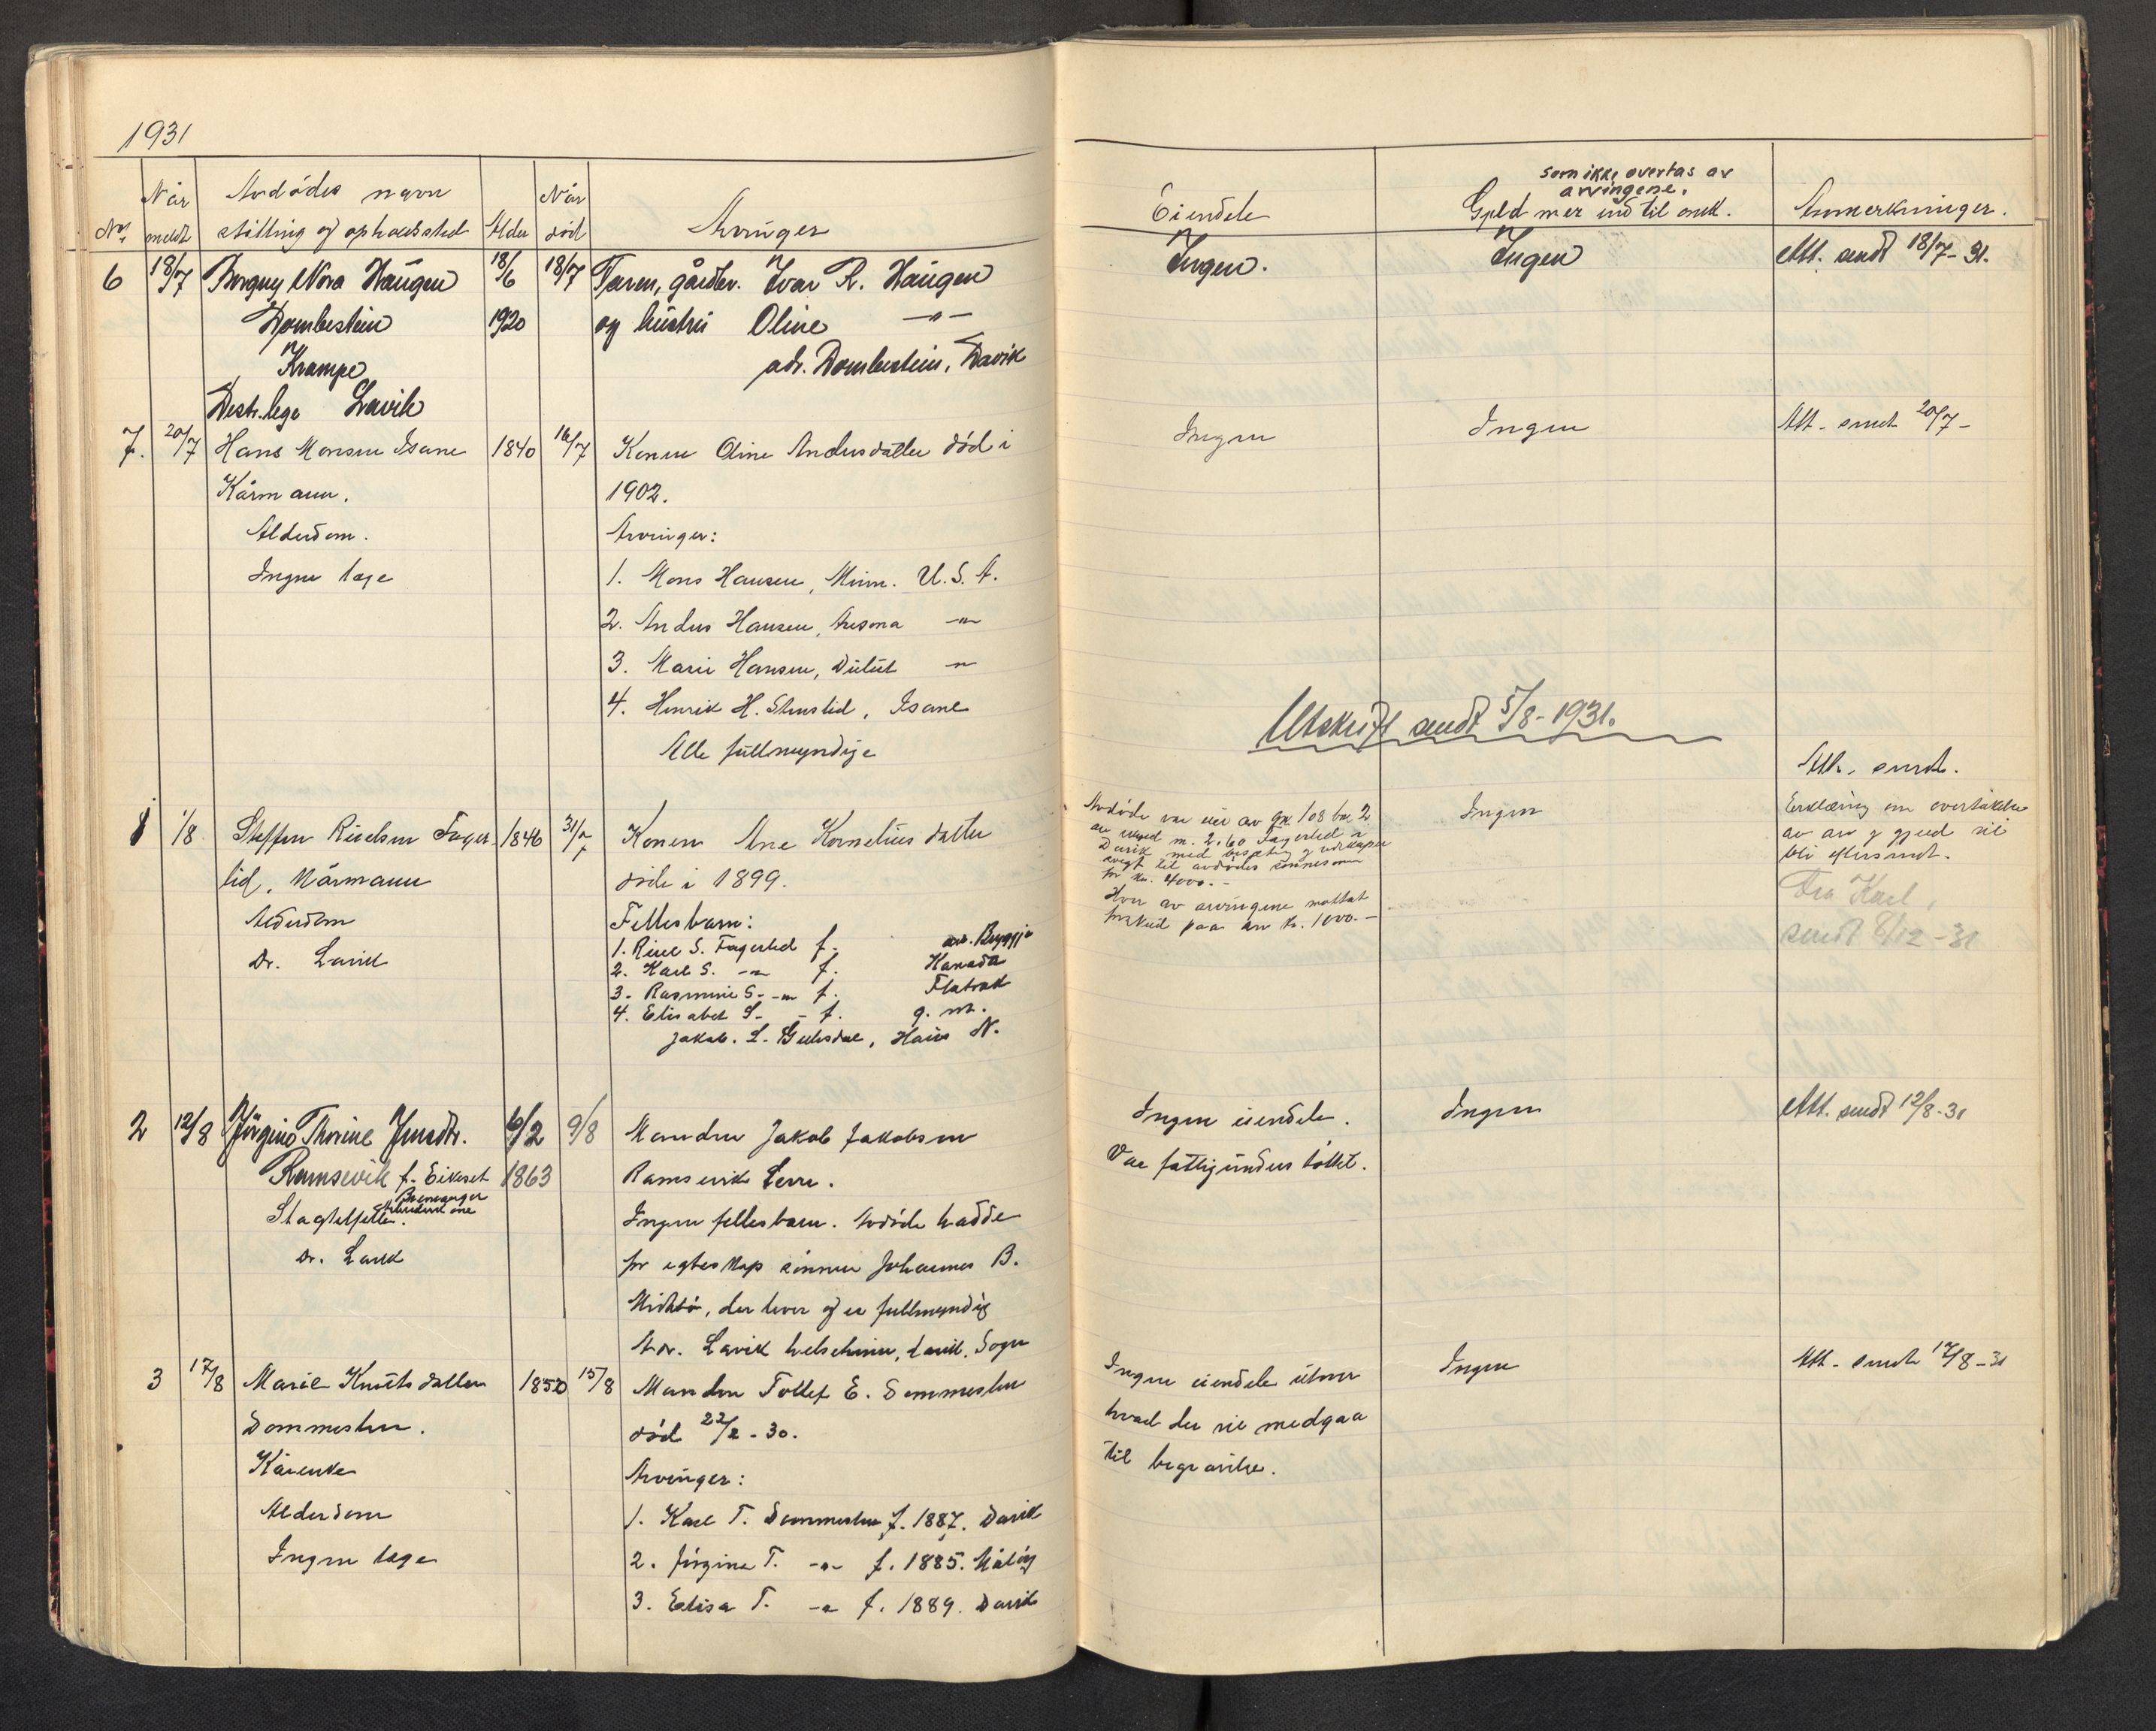 1931
No. Når meldt Avdødes navn stilling og opholdssted Alder Når død Arvinger
6 18/7 Borgny Nora Haugen 18/6 18/7 Faren, gårdbr. Ivar R. Haugen
Dombestein 1920 og hustru Oline -"-
Krampe adr. Dombestein, Davik
Distr.lege Lavik
7. 20/7 Hans Monsen Isane 1840 16/7 Konen Oline Andersdatter død i
Kårmann. 1902.
Alderdom. Arvinger:
Ingen læge 1. Mons Hansen, Minn. U.S.A.
2. Anders Hansen, -"-
3. Marie Hansen, Dulut -"-
4. Henrik H. Stenslid, Isane
Alle fullmyndige
1 1/8 Steffen Rielsen Fager- 1846 31/7 Konen Ane Korneliusdatter
lid, Kårmann døde i 1899.
Alderdom Fellesbarn:
Dr. Lavik 1. Riel S. Fagerlid f. adr. Bryggja
2. Karl S. -"- f. Kanada
3. Rasmine S. -"- f. Flatrak
4. Elisabet S. - f. g. m.
Jakob. L. Haus N.
2 12/8 Jørgine Thorine Jensdtr. 6/2 9/8 Manden Jakob Jakobsen
Ramsevik f. Eikeset 1863 Ramsevik Lever.
Bremanger
Slagtilfelle. Ingen fellesbarn. Avdøde hadde
Dr. Lavik før egteskap sønnen Johannes B.
der lever og er fullmyndig
Adr. Lavik helseheim, Lavik, Sogn
3 17/8 Marie Knutsdatter 1850 15/8 Manden Tollef E. Dommesten
Dommesten. død 22/2-30.
Kårenke Arvinger:
Alderdom 1. Karl T. Dommesten f. 1887. Davik
Ingen læge 2. Jørgine T. -"- f. 1885. Måløy
3. Elisa T. -"- f. 1889. Davik
som ikke overtas av
arvingene.
Eiendele Gjeld mer end til omk. Anmerkninger.
Ingen. Ingen Att. sendt 18/7-31.
Ingen Ingen Att. sendt 20/7-
Utskrift sendt 5/8-1931.
Att. sendt.
Avdøde var eier av gn. 108 bn. 2 Ingen Erklæring om overtakelse
av skyld m. 2,60 Fagerlid i av arv og gjeld vil
Davik med besetning og redskaper bli eftersendt.
solgt til avdødes sønnesønn
for kr. 4000.- Fra Karl,
Hver av arvingene mottat
forskud paa arv kr. 1000.- sendt 8/12-31
Ingen eiendele. Ingen Att. sendt 12/8-31
Var fattigunderstøttet.
Ingen eiendele utover Ingen Att. sendt 17/8-31
hvad der vil medgaa
til begravelse.